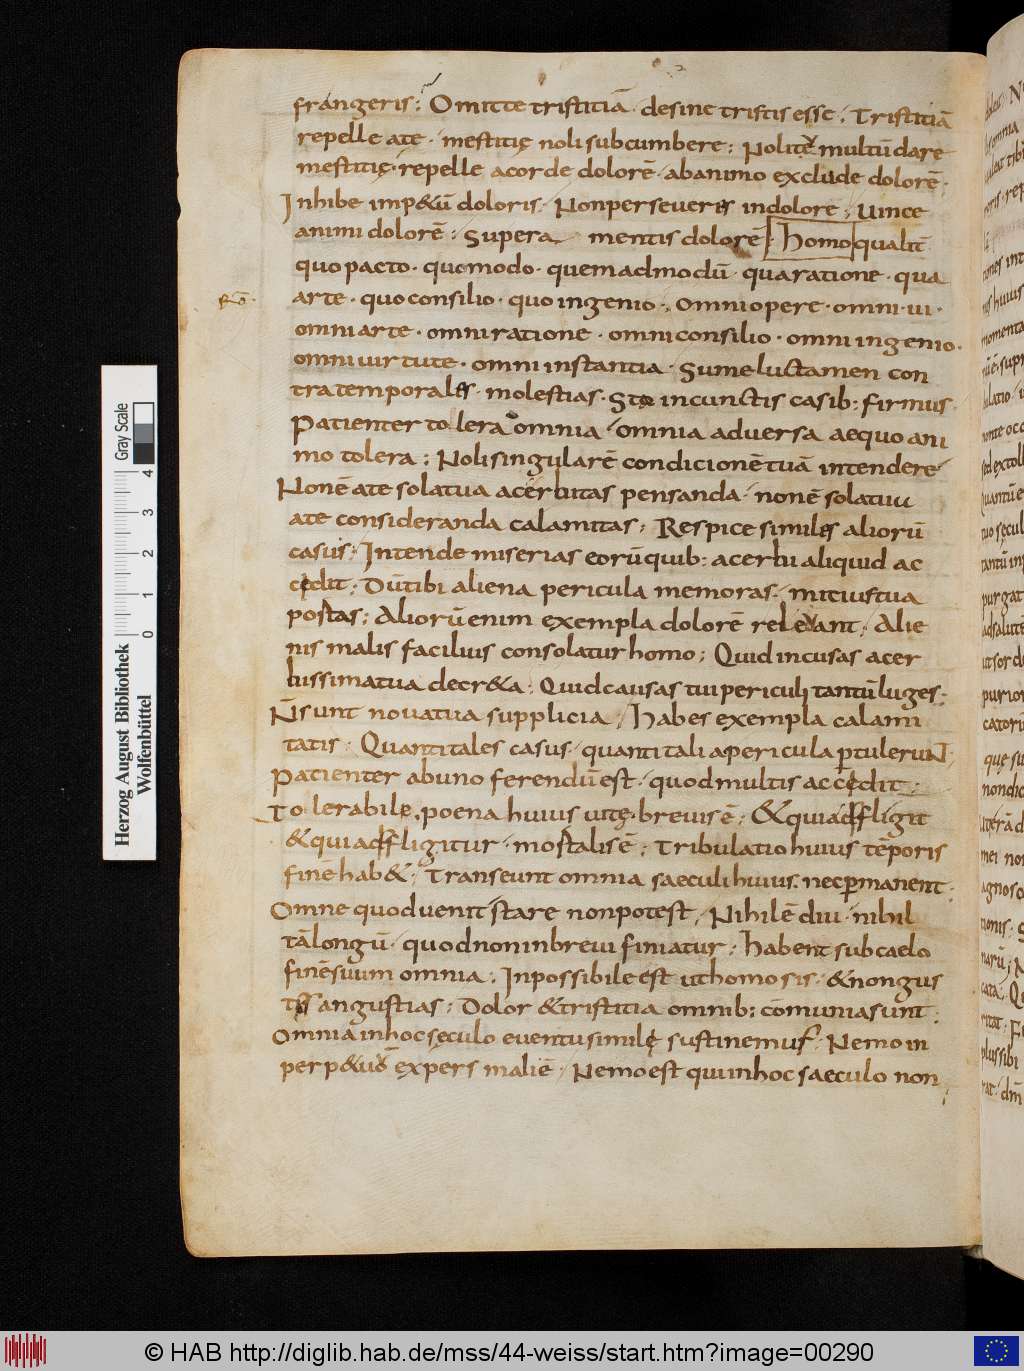 frangeris; Omitte tristitiā · desine tristis esse; Tristitiā
repelle a te · mestitię noli subcumbere; Noli te multū dare
mestitię · repelle a corde dolorē · ab animo exclude dolorē ·
Inhibe imp&ū doloris · Non perseveres in dolore; Vince
animi dolorē; Supera mentis dolorē · Homo qualit̄
quo pacto · quomodo · quemadmodū · qua ratione · qua
arte · quo consilio · quo ingenio; omni opere · omni · ui ·
omni arte · omni ratione · omni consilio · omni ingenio ·
omni uirtute · omni instantia · Sume luctamen con
tra temporales · molestias · Sto in cunctis casib: firmus ·
Patienter tolera omnia · omnia aduersa aequo ani
mo tolera; Noli singularē condicionē tuā intendere
Non ē ate sola tua acerbitas pensanda · non ē sola tuu
ate consideranda calamitas; Respice similes aliorū
casus; Intende miserias eorū quib: acerbi aliquid ac
cedit; Dū tibi aliena pericula memoras · mitius tua
portas; Aliorū enim exempla dolorē relevant; Alie
nis malis facilius consolatur homo; Quid incusas acer
bissima tua decr&a; Quid causas tui periculi tantū luges;
N̄ sunt noua tua supplicia; Habes exempla calami
tatis; Quanti tales casus · quanti talia pericula p̱tulerunt;
Patienter ab uno ferendū est · quod multis accedit;
Tollerabile poena huius uitę · breuis ē; & qui adfligit
& qui adfligitur · mortalis ē; Tribulatio huius tēporis
finē hab&; Transeunt omnia saeculi huius · nec p̱manent ·
Omne quod uenit stare non potest; Nihil ē diu · nihil
tā longū · quod non in breui finiatur; Habent sub caelo
finē suum omnia; Inpossibile est ut homo sis · & non gus
tes angustias; Dolor & tristitia omnib: cōmunia sunt;
Omnia in hoc sęculo euentu simile sustinemus; Nemo in
perp&uō expers mali ē; Nemo est qui in hoc saeculo non
Gray Scale
4 3 2 1 0
Herzog August Bibliothek
Wolfenbüttel
© HAB http://diglib.hab.de/mss/44-weiss/start.htm?image=00290